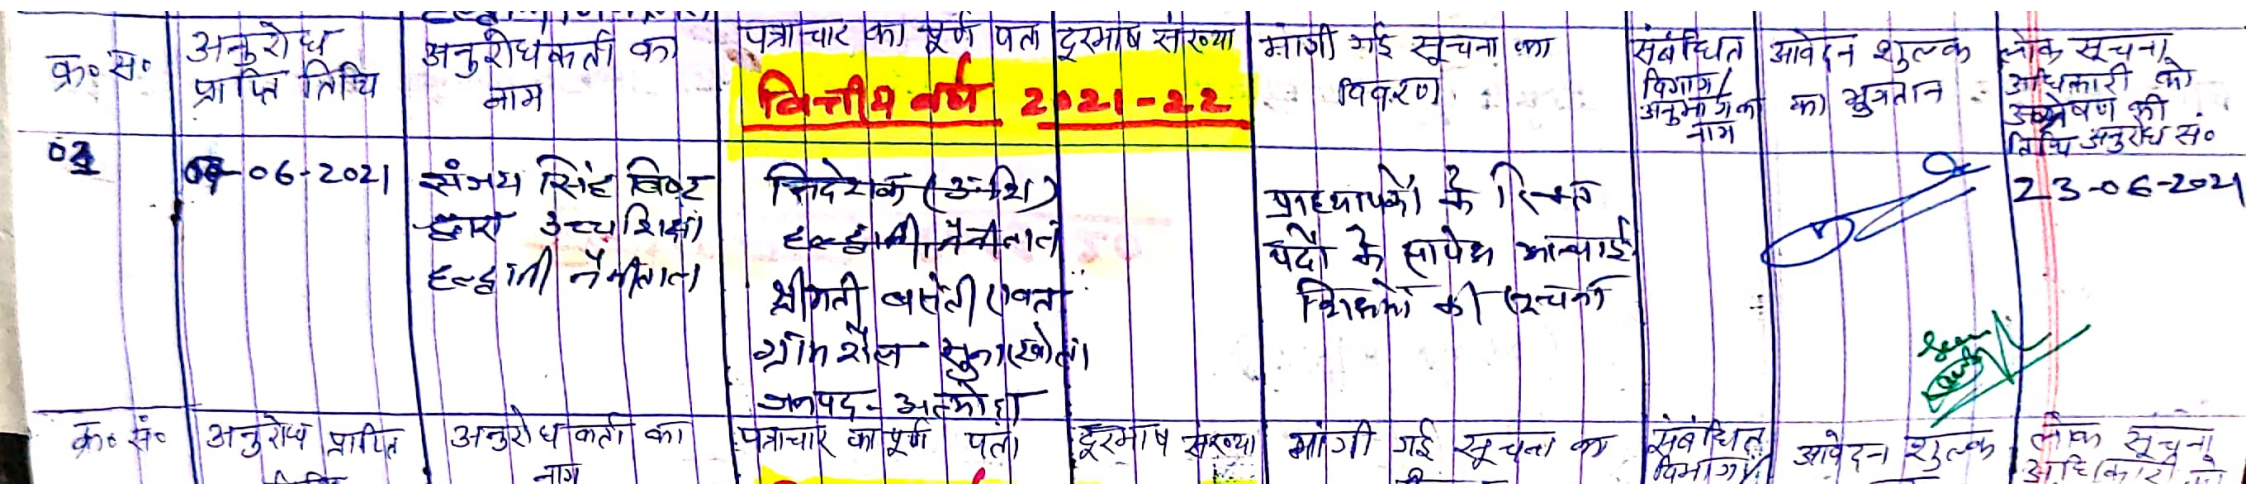 क्र० स०
अनुरोध
प्राप्ति तिथि
अनुरोधकर्ता का
नाम
पत्राचार का पूर्ण पता
दूरभाष संख्या
वित्तीय वर्ष 2021-22
मांगी गई सूचना का
विवरण
संबंधित
विभाग/
अनुभाग का
नाम
आवेदन शुल्क
का भुगतान
लोक सूचना
अधिकारी को
की
तिथि अनुरोध सं०
-06-2021
संजय सिंह बिष्ट
द्वारा उच्च शिक्षा
हल्द्वानी नैनीताल
निदेशक (उ.शि)
हल्द्वानी, नैनीताल
श्रीमती बसंती रावत
ग्राम शैल
जनपद - अल्मोड़ा
प्राध्यापकों के रिक्त
पदों के सापेक्ष अस्थाई
शिक्षकों की सूचना
23-06-2021
क्र० सं०
अनुरोध प्राप्ति
तिथि
अनुरोधकर्ता का
नाम
पत्राचार का पूर्ण पता
दूरभाष संख्या
मांगी गई सूचना का
संबंधित
विभाग/
आवेदन शुल्क
लोक सूचना
अधिकारी को